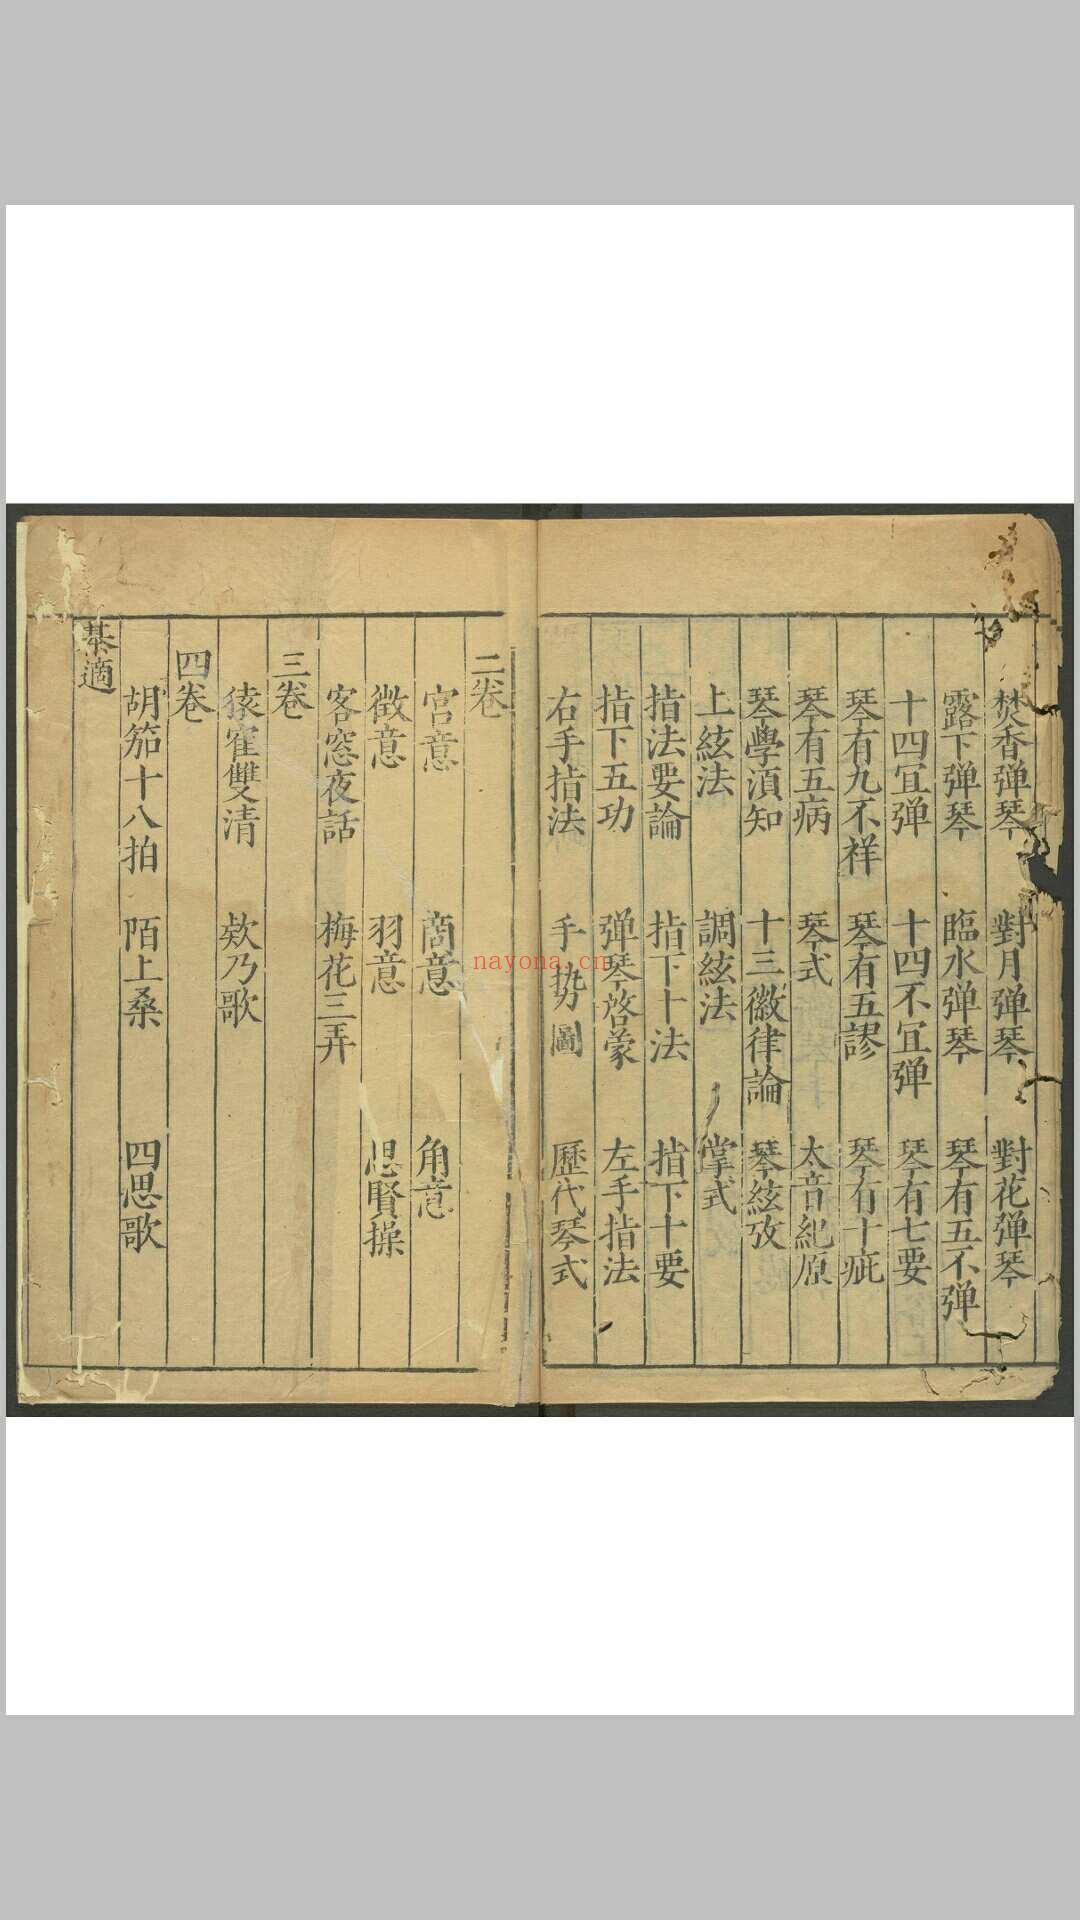 焚香弹琴　對月弹琴　對花弹琴
露下弹琴　臨水弹琴　琴有五不弹
十四冝弹　十四不冝弹　琴有七要
琴有九不祥　琴有五謬　琴有十疵
琴有五病　琴式　太音紀原
琴學湏知　十三徽律論　琴絃攷
上絃法　調絃法　掌式
指法要論　指下十法　指下十要
指下五功　弹琴啓蒙　左手指法
右手指法　手势圖　歷代琴式
二卷
宫意　商意　角意
徵意　羽意　思賢操
客窓夜話　梅花三弄
三卷
猿寉雙清　欸乃歌
四卷
胡笳十八拍　陌上桑　四思歌
棊適
nayona.cn